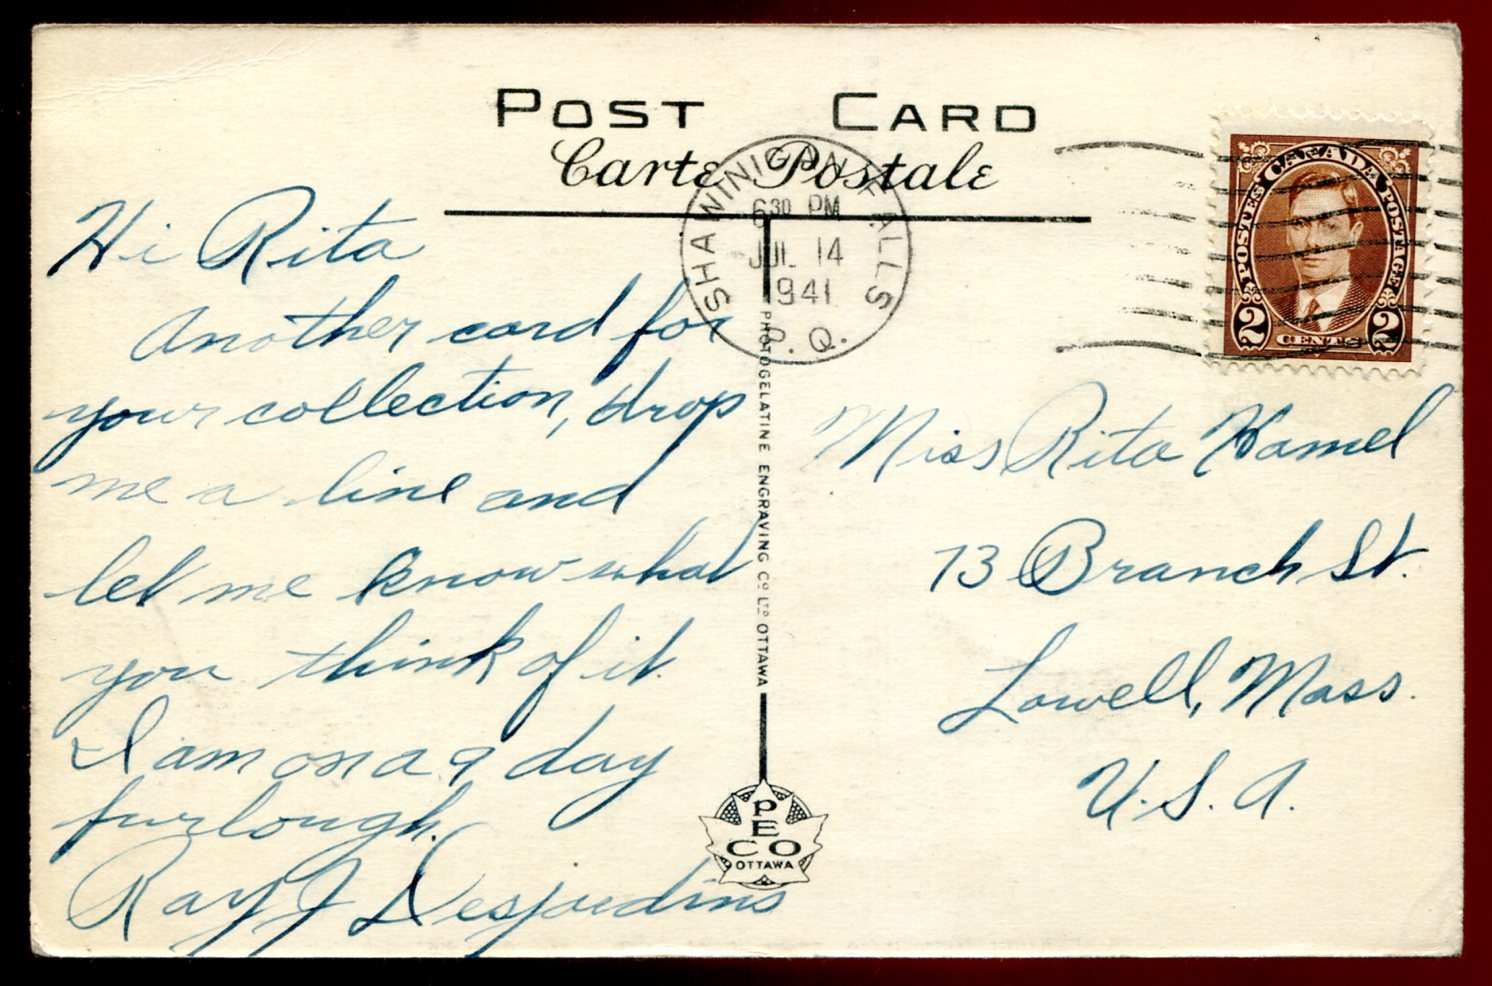 POST CARD
Carte Postale
SHAWINIGAN FALLS
6 30 PM
JUL 14
1941
P.Q.
CANADA
POSTES POSTAGE
2 CENTS 2
Hi Rita
Another card for
your collection, drop
me a line and
let me know what
you think of it.
I am on a 9 day
furlough.
Ray J Desjardins
PHOTOGELATINE ENGRAVING CO LTD OTTAWA
PECO
OTTAWA
Miss Rita Hamel
73 Branch St.
Lowell, Mass.
U.S.A.